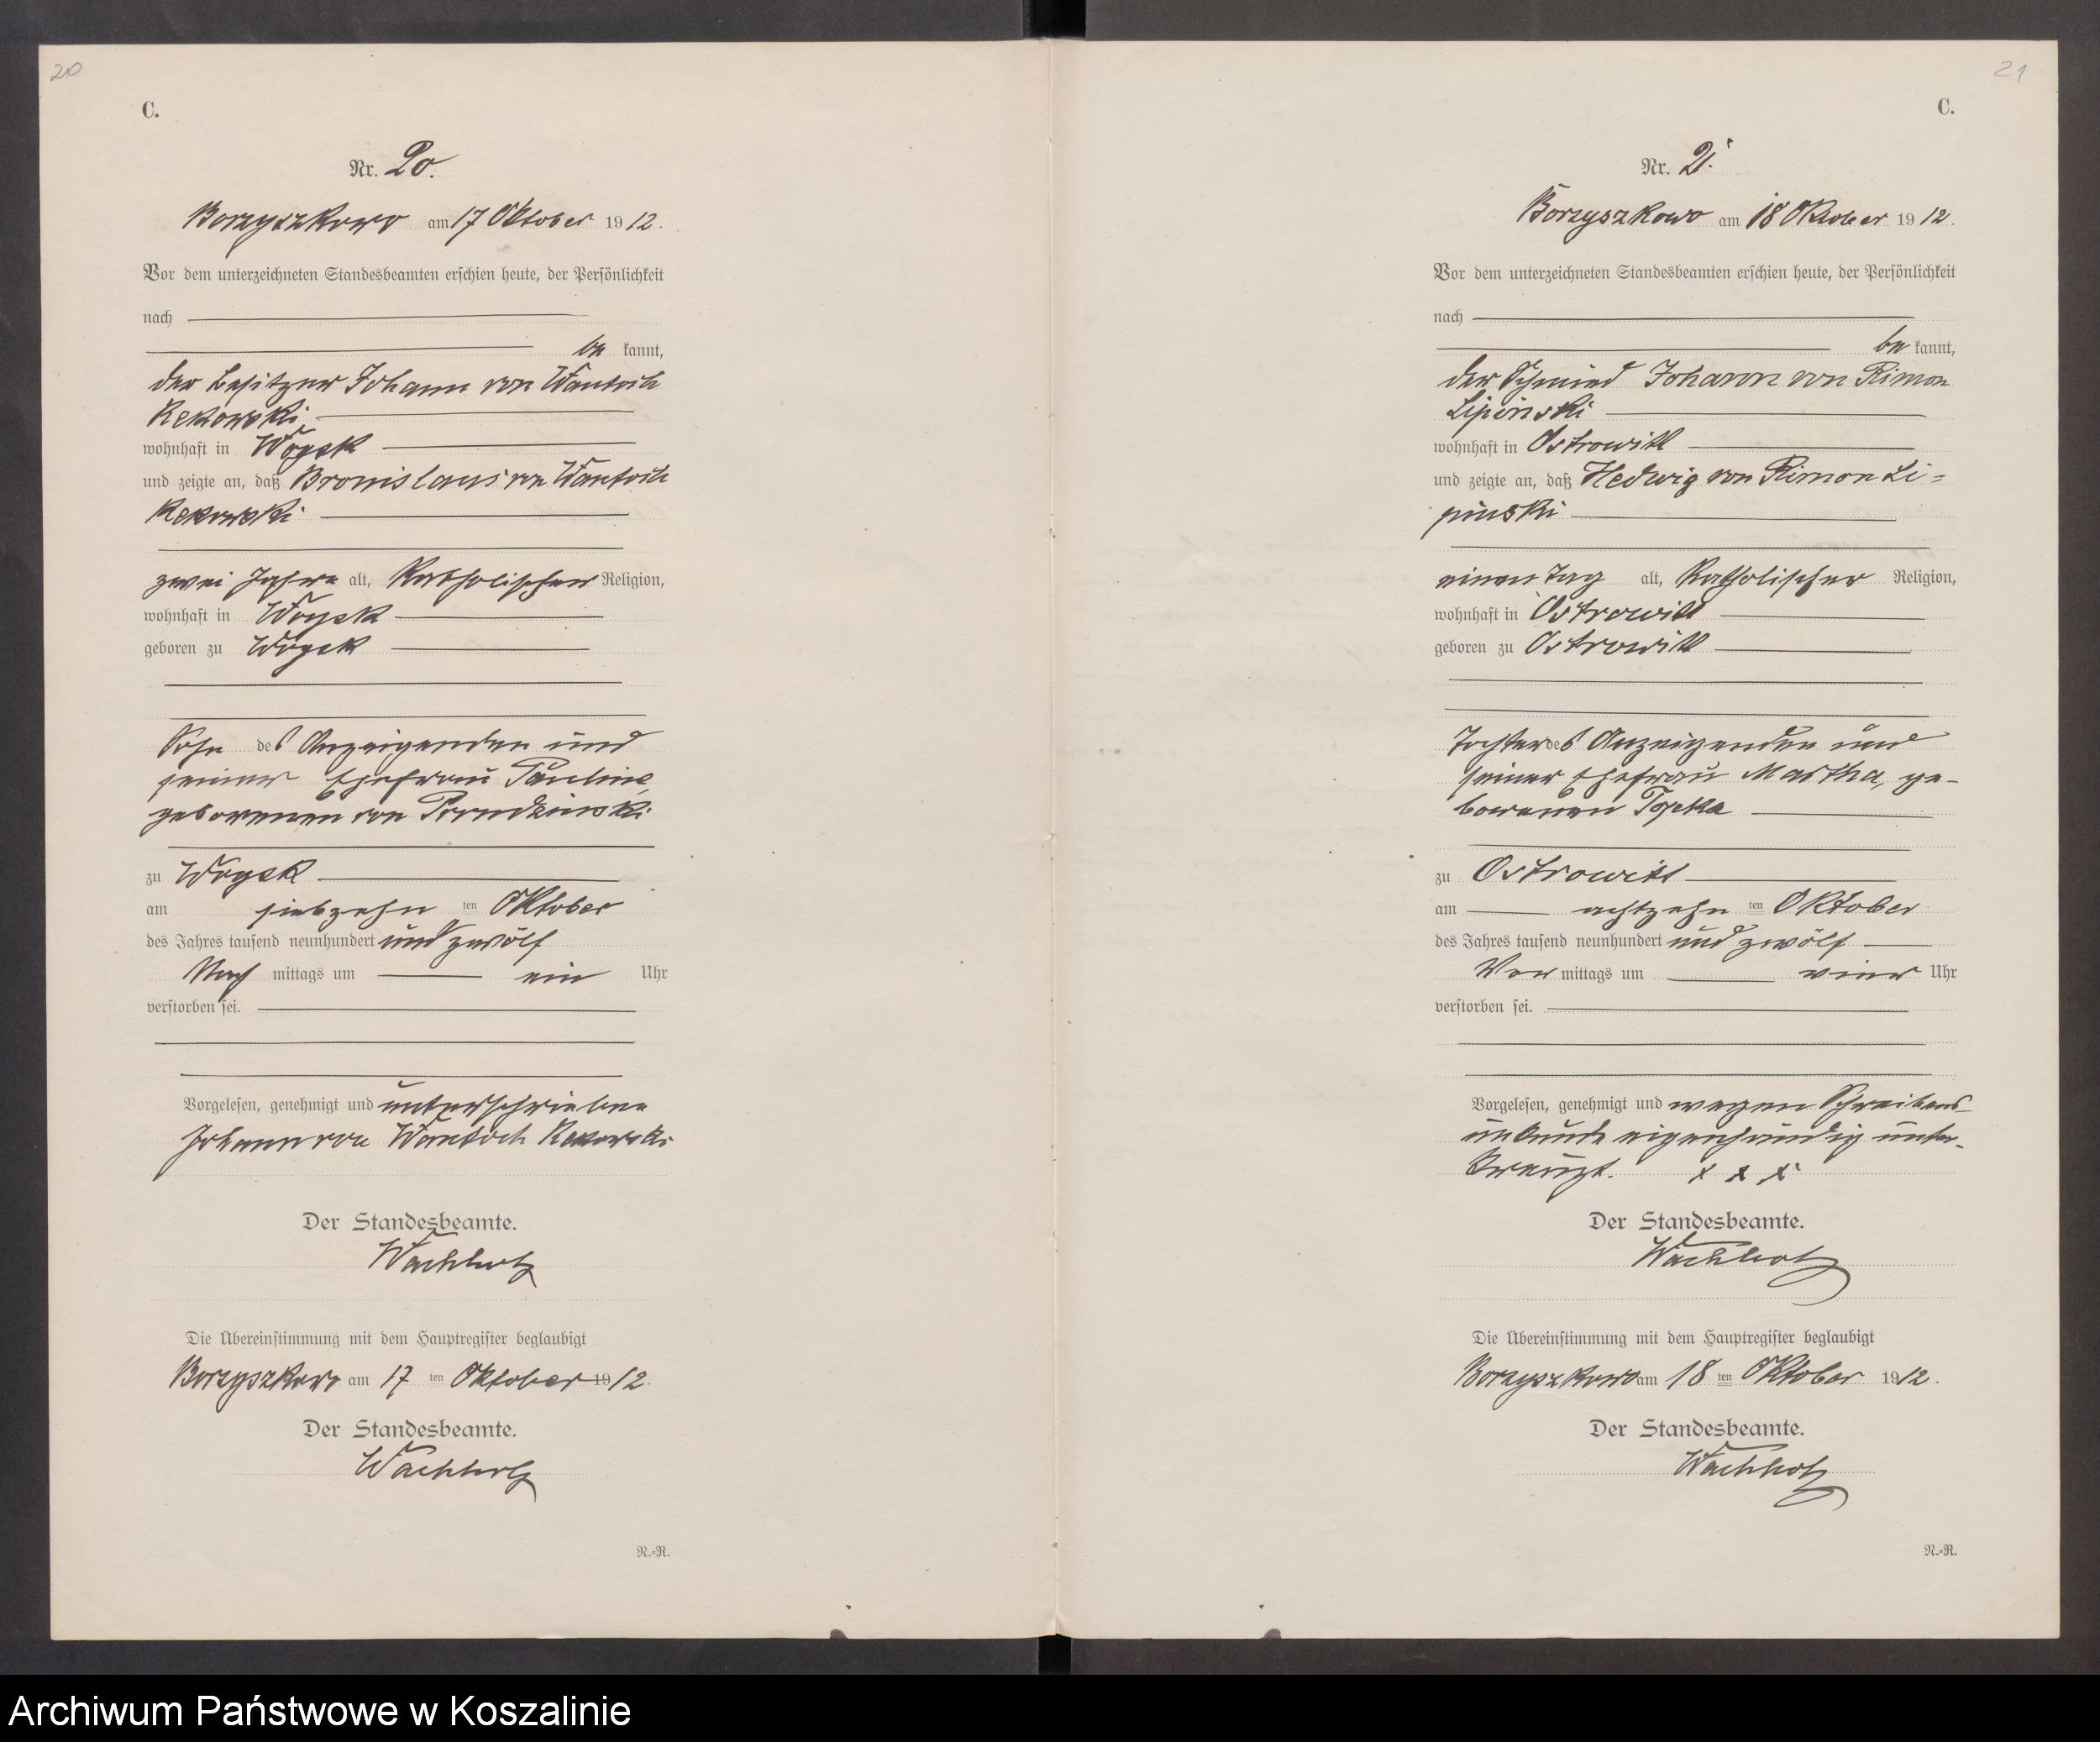 20
C.
Nr. 20.
Borzyszkowo am 17 Oktober 1912.
Vor dem unterzeichneten Standesbeamten erschien heute, der Persönlichkeit
nach
be kannt,
der Besitzer Johann von Wantoch
Rekowski
wohnhaft in Woysk
und zeigte an, daß Bronislaus von Wantoch
Rekowski
zwei Jahre alt, Katholischer Religion,
wohnhaft in Woysk
geboren zu Woysk
Sohn des Anzeigenden und
seiner Ehefrau Pauline,
geborenen von
zu Woysk
am siebzehn ten Oktober
des Jahres tausend neunhundert und zwölf
Nach mittags um ein Uhr
verstorben sei.
Vorgelesen, genehmigt und unterschrieben
Johann von Wantoch Rekowski
Der Standesbeamte.
Wachholz
Die Übereinstimmung mit dem Hauptregister beglaubigt
Borzyszkowo am 17 ten Oktober 1912.
Der Standesbeamte.
Wachholz
N.-R.
21
C.
Nr. 21.
Borzyszkowo am 18 Oktober 1912.
Vor dem unterzeichneten Standesbeamten erschien heute, der Persönlichkeit
nach
be kannt,
der Schmied Johann von Rimon
Lipinski
wohnhaft in Ostrowitt
und zeigte an, daß Hedwig von Rimon Li=
pinski
einen Tag alt, Katholischer Religion,
wohnhaft in Ostrowitt
geboren zu Ostrowitt
Tochter des Anzeigenden und
seiner Ehefrau Martha, ge-
borenen
zu Ostrowitt
am achtzehn ten Oktober
des Jahres tausend neunhundert und zwölf
Vor mittags um vier Uhr
verstorben sei.
Vorgelesen, genehmigt und wegen Schreibens-
unkunde eigenhändig unter-
kreuzt. x x x
Der Standesbeamte.
Wachholz
Die Übereinstimmung mit dem Hauptregister beglaubigt
Borzyszkowo am 18 ten Oktober 1912.
Der Standesbeamte.
Wachholz
N.-R.
Archiwum Państwowe w Koszalinie